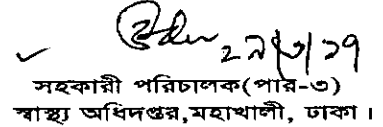 ২৯/৩/১৭
সহকারী পরিচালক(পার-৩)
স্বাস্থ্য অধিদপ্তর,মহাখালী, ঢাকা।